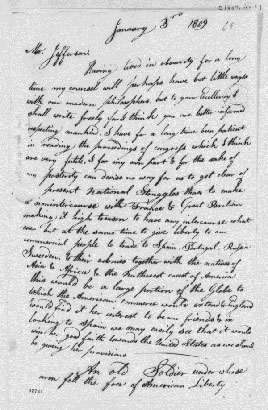 January 3rd 1809
Mr. Jefferson
Having lived in obscurity for a long
time my counsel will perhaps have but little weight
with our modern philosophers, but to your Excellency I
shall write freely for I think you are better informed
respecting mankind. I have for a long time been patient
in reading the proceedings of congress which I think
are very futile, I for my own part & for the sake of
my posterity can devise no way for us to get clear of
present National Struggles than to make
a nonintercourse with France & Great Britain
making it high treason to have any intercourse, what
ever but at the same time to give liberty to our
commercial people to trade to Spain Portugal, Russia
Sweeden & their colonies together with the natives of
Asia & Africa & the Northwest coast of America
this would be a large portion of the Globe to
which the American commerce would extend & England
would find it her interest to be our friends &
looking to Spain we may easily see that it would
win her good faith towards the United States as we stand
by giving her provisions
An old Soldier under whose
arm fell the foes of American Liberty